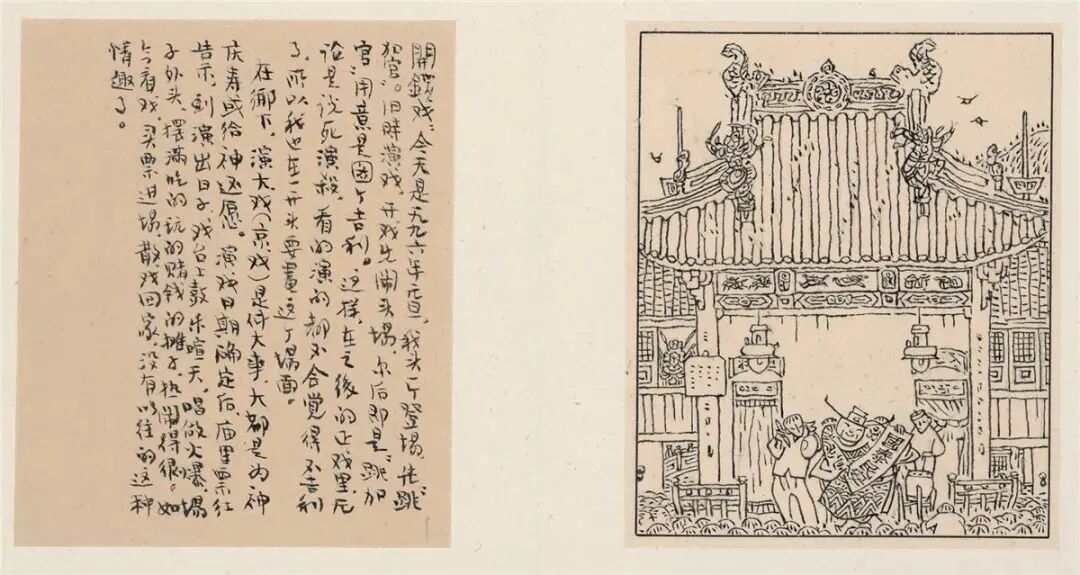 開鑼戏:今天是一九九六年元旦,我头一个登場先跳
加官。旧時演戏,开戏先闹头場,尔后即是“跳加
官”用意是图个吉利。这样,在之後的正戏里,无
论是说死演殺,看的演的都不会覚得不吉利
了,所以我也在一开头要畫这个場面。
在鄉下,演大戏(京戏)是件大事,大都是为神
庆寿或给神还愿。演戏日期确定后,庙里票红
告示,到演出日子戏台上鼓乐喧天,唱做火爆,場
子外头,摆满吃的玩的赌钱的摊子,热闹得很。如
今看戏,买票进場散戏回家,没有以往的这种
情趣了。